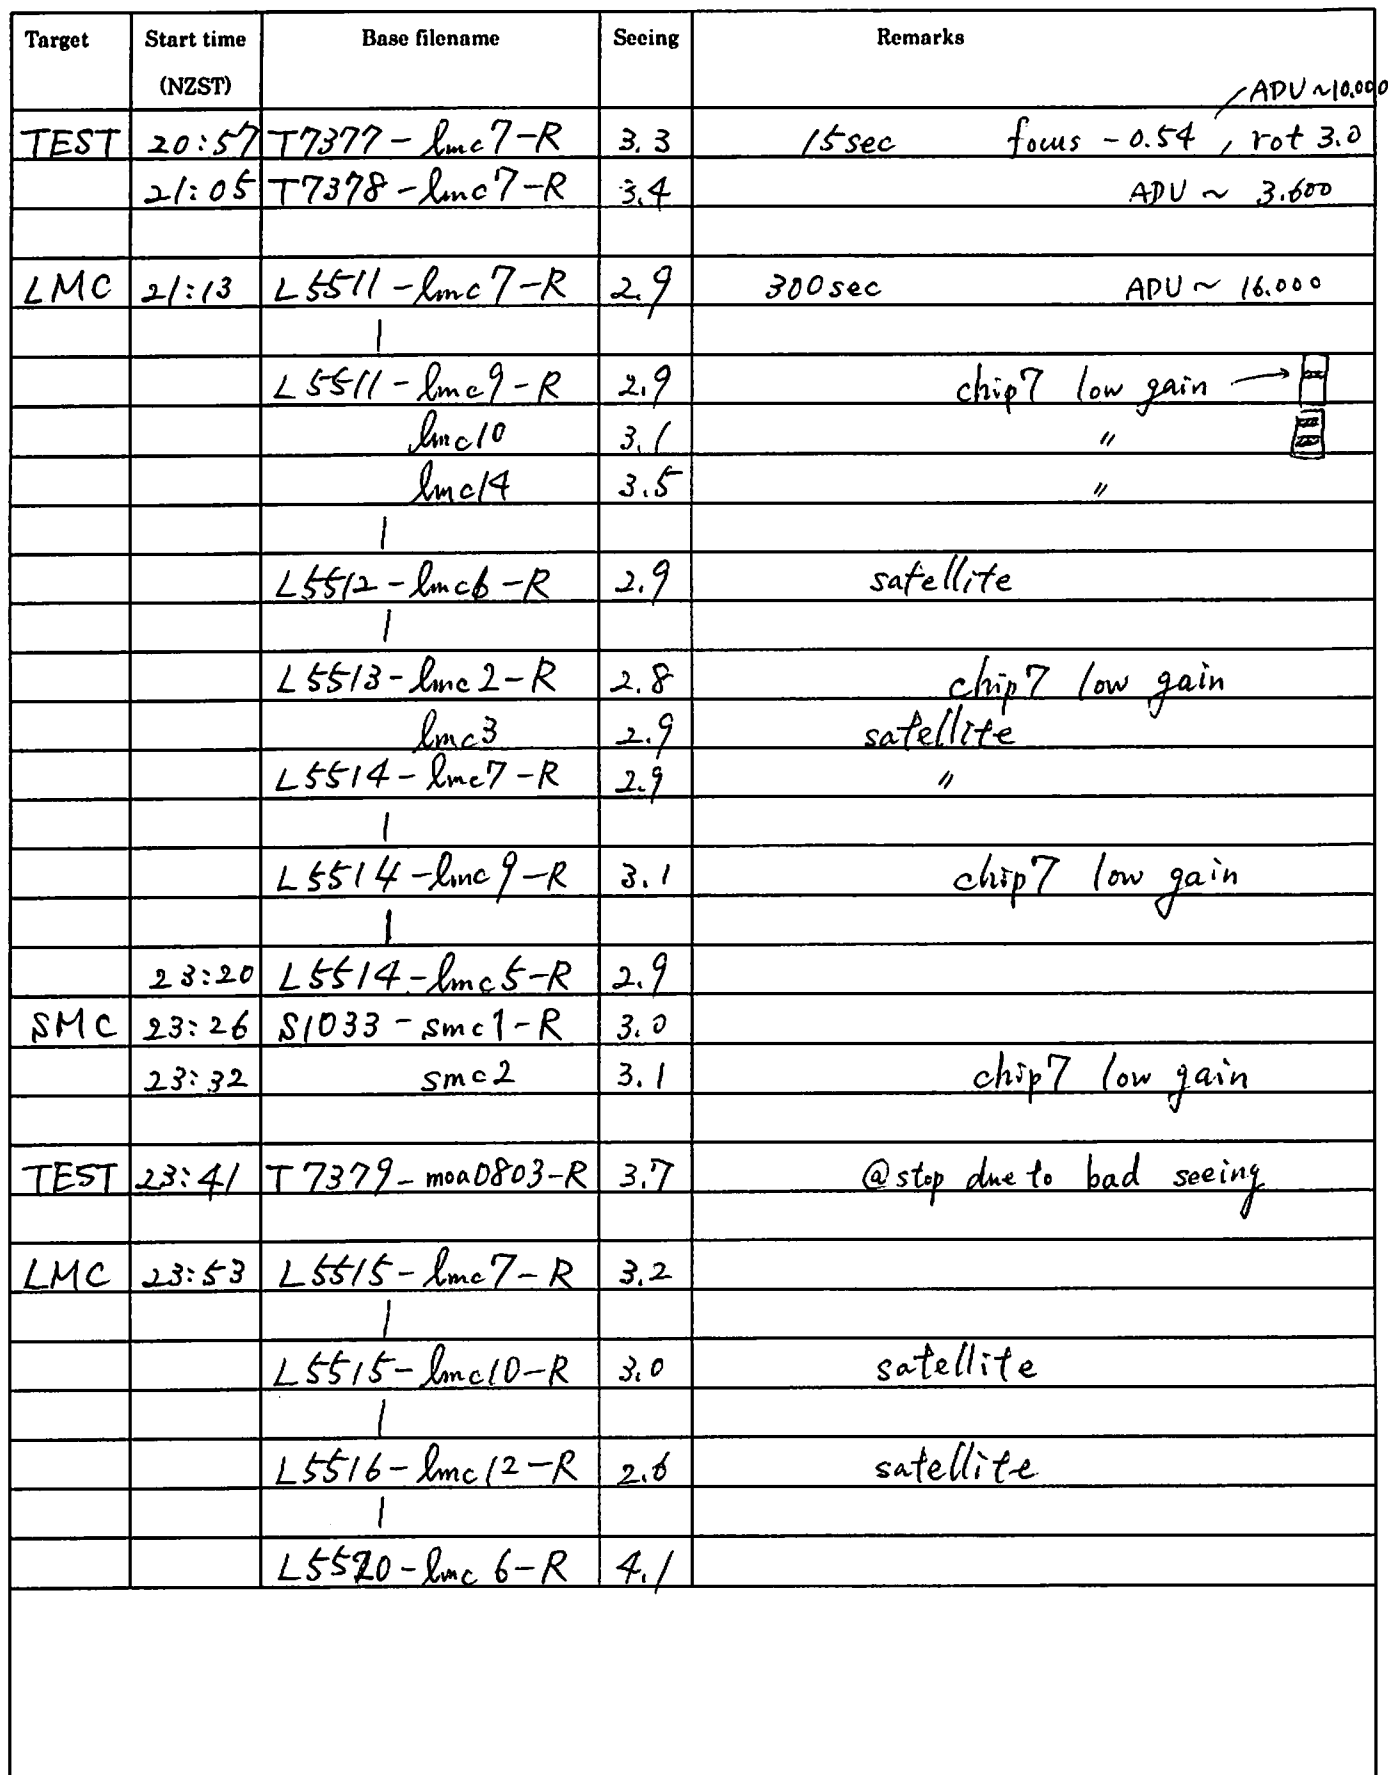 Target Start time (NZST) Base filename Seeing Remarks
ADU ~10.000
TEST 20:57 T7377-lmc7-R 3.3 15sec focus -0.54, rot 3.0
21:05 T7378-lmc7-R 3.4 ADU ~ 3.600
LMC 21:13 L5511-lmc7-R 2.9 300sec ADU ~ 16.000
|
L5511-lmc9-R 2.9 chip7 low gain →
lmc10 3.1 〃
lmc14 3.5 〃
|
L5512-lmc6-R 2.9 satellite
|
L5513-lmc2-R 2.8 chip7 low gain
lmc3 2.9 satellite
L5514-lmc7-R 2.9 〃
|
L5514-lmc9-R 3.1 chip7 low gain
|
23:20 L5514-lmc5-R 2.9
SMC 23:26 S1033-smc1-R 3.0
23:32 smc2 3.1 chip7 low gain
TEST 23:41 T7379-moa0803-R 3.7 @stop due to bad seeing
LMC 23:53 L5515-lmc7-R 3.2
|
L5515-lmc10-R 3.0 satellite
|
L5516-lmc12-R 2.6 satellite
|
L5520-lmc6-R 4.1